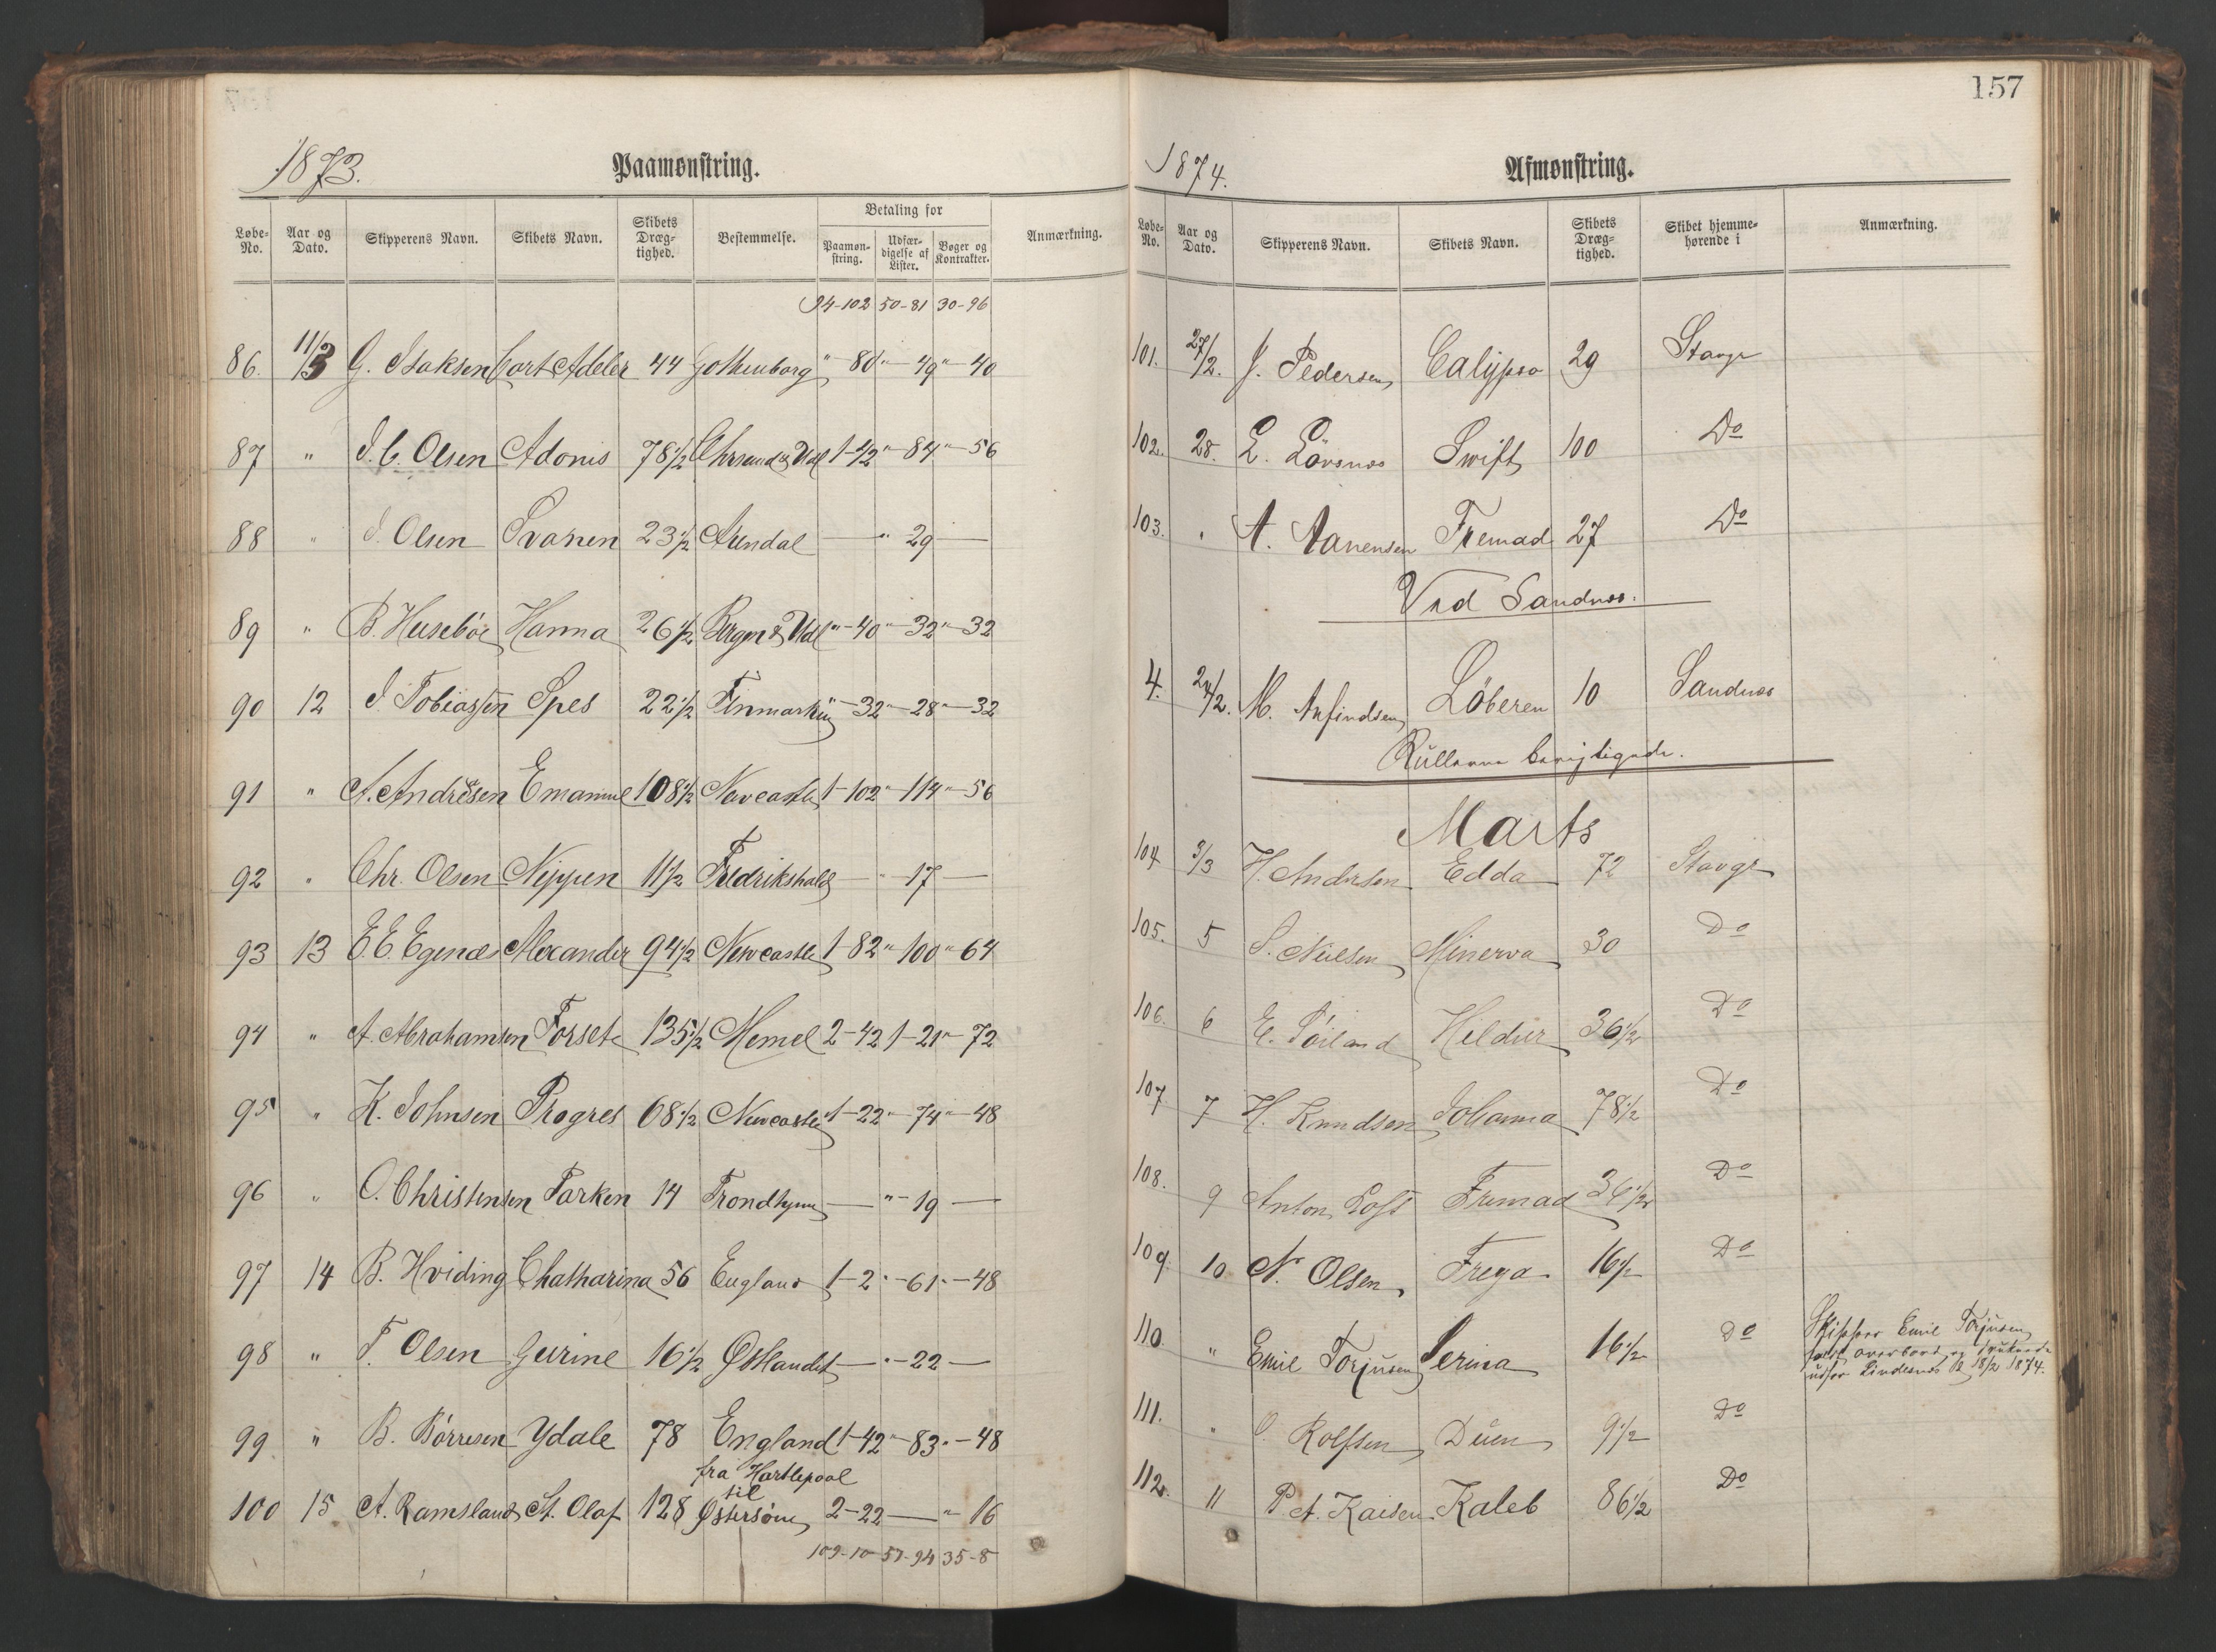 1873.
Paamønstring.
Løbe-No. Aar og Dato. Skipperens Navn. Skibets Navn. Skibets Dræg-tighed. Bestemmelse. Betaling for Paamøn-string. Udfær-digelse af Lister. Bøger og Kontrakter. Anmærkning.
94-102 50-81 30-96
86. 11/3 G. Isaksen Cort Adeler 44 Gothenborg " 80 " 49 " 40
87 " J. C. Olsen Adonis 78 1/2 Chrsand & Udl 1-42 " 84 " 56
88 " J. Olsen Svanen 23 1/2 Arendal — " 29 —
89 " B. Husebøe Hanna 26 1/2 Bergen & Udl " 40 " 32 " 32
90 12 J. Tobiassen Spes 22 1/2 Finmarken " 32 " 28 " 32
91 " A. Andresen Emanuel 108 1/2 Newcastle 1-102 " 114 " 56
92 " Chr. Olsen Nippen 11 1/2 Fredrikshald — " 17 —
93 13 E. E. Egenæs Alexander 94 1/2 Newcastle 1-82 " 100 " 64
94 " A. Abrahamsen Forsete 135 1/2 Memel 2-42 1-21 " 72
95 " K. Johnsen Progres 68 1/2 Newcastle 1-22 " 74 " 48
96 " O. Christensen Farken 14 Trondhjem — " 19 —
97 14 B. Hviding Chatharina 56 England 1-2 " 61 " 48
98 " T. Olsen Gurine 16 1/2 Østlandet — " 22 —
99 " B. Børresen Ydale 78 England 1-42 " 83 " 48
100 15 A. Ramsland St. Olaf 128 fra Hartlepool til Østersøen 2-22 — " 16
109-10 57-94 35-8
157
1874.
Afmønstring.
Løbe-No. Aar og Dato. Skipperens Navn. Skibets Navn. Skibets Dræg-tighed. Skibet hjemme-hørende i Anmærkning.
101. 27/2. J. Pedersen Calypso 29 Stavgr
102. 28. L. Lövsnæs Swift 100 Do
103. " A. Aanensen Fremad 27 Do
Ved Sandnæs.
4. 24/2. M. Anfindsen Löberen 10 Sandnæs
Rullerne berigtigede.
Marts
104 3/3 H. Andersen Edda 72 Stavgr
105. 5 S. Nielsen Minerva 30 Do
106. 6 E. Söiland Hildur 36 1/2 Do
107. 7 H. Knudsen Johanna 78 1/2 Do
108. 9 Anton Loft Fremad 36 1/2 Do
109. 10 N. Olsen Freya 16 1/2 Do
110. " Emil Torjusen Serina 16 1/2 Do Skipper Emil Torjusen
faldt overbord og druknede
udfor Lindesnæs d. 18/2 1874.
111. " O. Rolfsen Duen 9 1/2 Do
112. 11 P. A. Kaisen Kaleb 86 1/2 Do